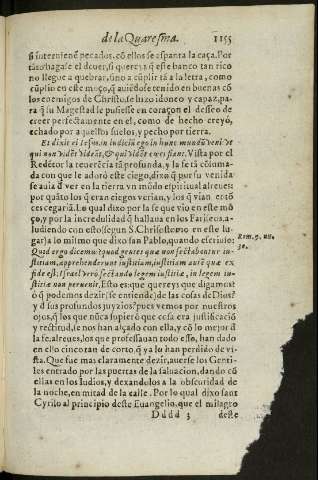 de la Quaresma. 1155
si interuienẽ pecados, cõ ellos se espanta la caça. Por
tãto hagase el deuer, si quereys q̃ este banco tan rico
no llegue a quebrar, sino a cũplir tã a la letra, como
cũplio en este moço, q̃ auiẽdose tenido en buenas cõ
los enemigos de Christo, se hizo idoneo y capaz, pa-
ra q̃ su Magestad le pusiesse en coraçon el desseo de
creer perfectamente en el, como de hecho creyò,
echado por aquellos suelos, y pecho por tierra.
Et dixit ei Iesus, in iudiciũ ego in hunc mundũ veni vt
qui non vidẽt videãt, & qui vidẽt cæci fiant. Vista por el
Redẽtor la reuerẽcia tã profunda, y la fe tã cõsuma-
da con que le adorò este ciego, dixo q̃ por su venida
se auia d̃ ver en la tierra vn mõdo espiritual al reues:
por quãto los q̃ eran ciegos verian, y los q̃ vian essos
cegariã. Lo qual dixo por la fe que vio en este mo
ço, y por la incredulidad q̃ hallaua en los Fariseos, a-
ludiendo con esto (segun S. Chrisostomo en este lu-
gar) a lo mismo que dixo san Pablo, quando escriuio:
Quid ergo dicemus? quod gentes quæ non sectabantur iu-
stitiam, apprehenderunt iustitiam, iustitiam autẽ quæ ex
fide est: Israel verò sectando legem iustitiæ, in legem iu-
stitiæ non peruenit. Esto es: que quereys que digamos?
ò q̃ podemos dezir, se entiende de las cosas de Dios?
y d̃ sus profundos juyzios? pues vemos por nuestros
ojos, q̃ los que nũca supierõ que cosa era justificaciõ
y rectitud, se nos han alçado con ella, y cõ lo mejor d̃
la fe, al reues, los que professauan todo esso, han dado
en ello cincotan de corto q̃ ya lo han perdido de vi-
sta. Que fue mas claramente dezir, auerse los Genti-
les entrado por las puertas de la saluacion, dando cõ
ellas en los Iudios, y dexandolos a la obscuridad de
la noche, en mitad de la calle. Por lo qual dixo san
Cyrilo al principio deste Euangelio, que el milagro
Dddd 3 deste
Rom. 9. nu.
30.